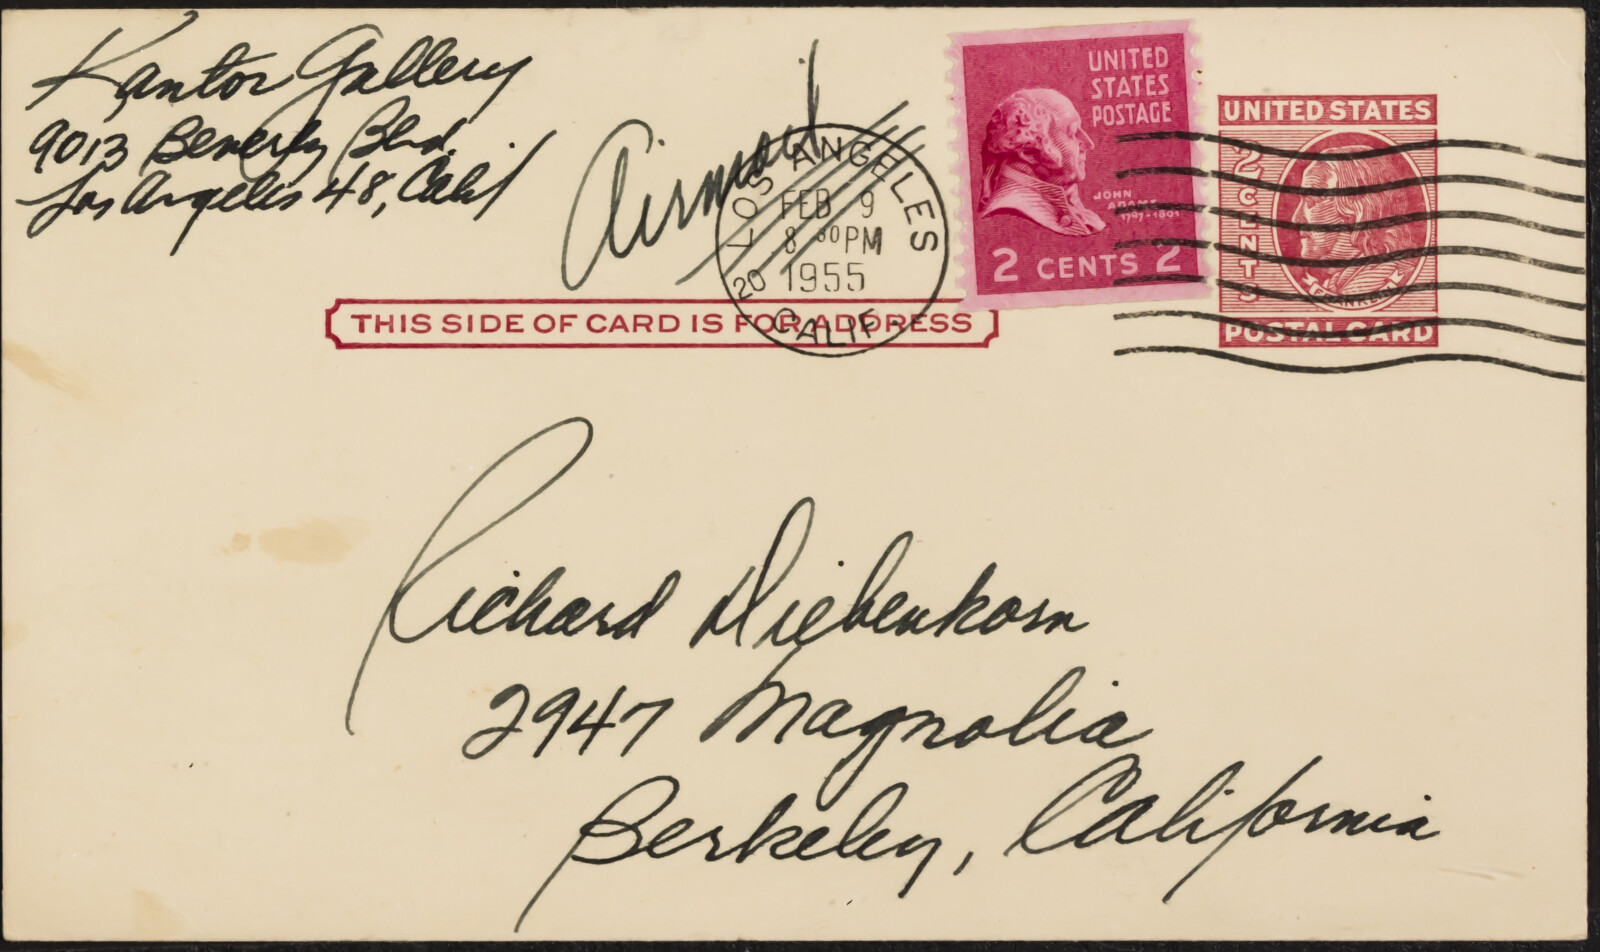 Kantor Gallery
9013 Beverly Blvd.
Los Angeles 48, Calif
Airmail
LOS ANGELES
FEB 9
8 30 PM
1955
20
CALIF.
UNITED
STATES
POSTAGE
JOHN
ADAMS
1797-1801
2 CENTS 2
UNITED STATES
2 CENTS
FRANKLIN
POSTAL CARD
THIS SIDE OF CARD IS FOR ADDRESS
Richard Diebenkorn
2947 Magnolia
Berkeley, California